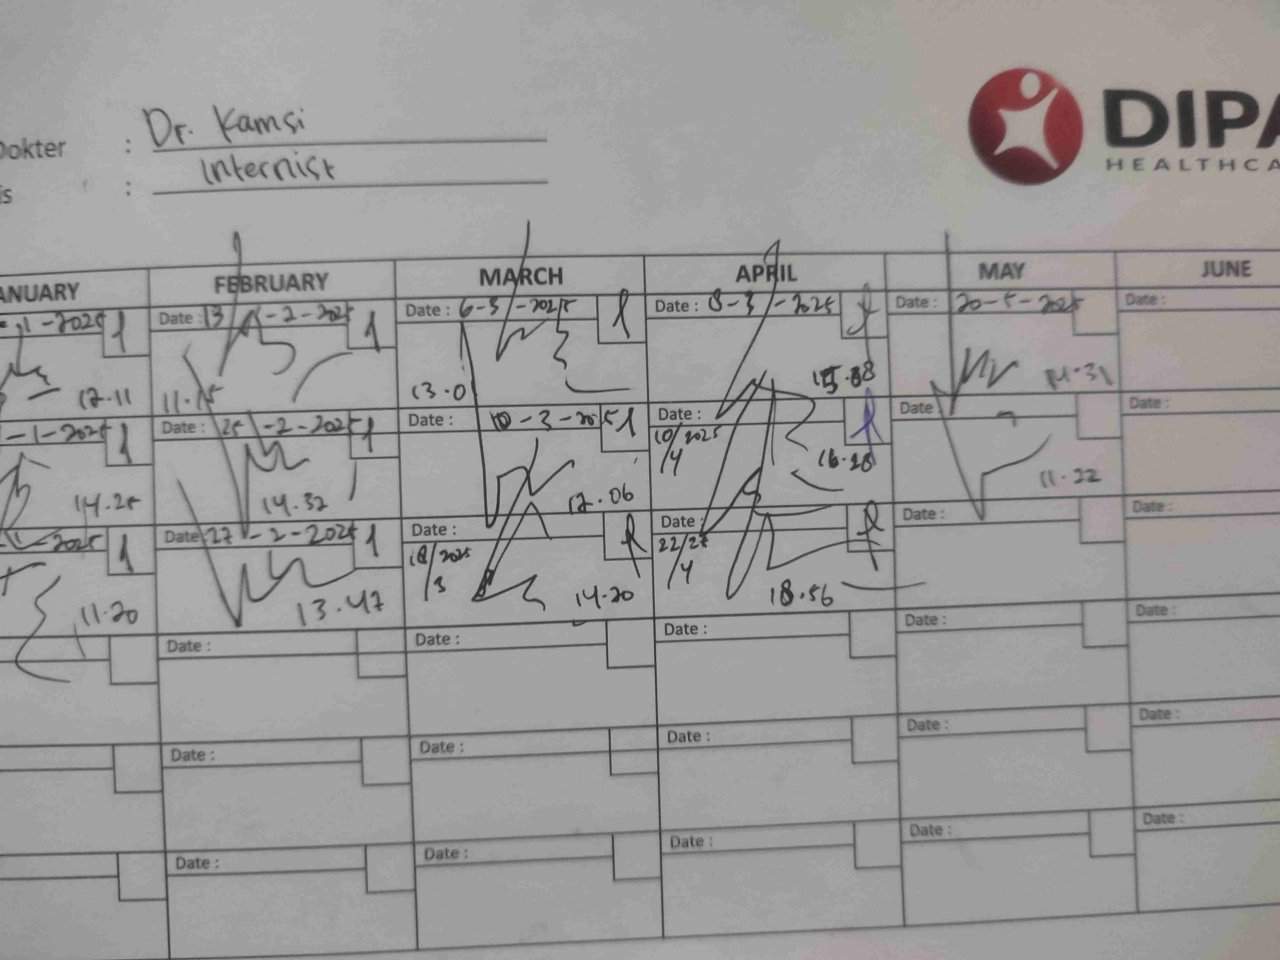 Dokter : Dr. Kamsi
is : Internist
DIPA
HEALTHCA
ANUARY FEBRUARY MARCH APRIL MAY JUNE
-1-2025 1 Date : 13 -2-2025 1 Date : 6-3-2025 1 Date : 8-3-2025 Date : 20-5-2025 Date :
12.11 11.15 13.0 15.
-1-2025 1 Date : 25 -2-2025 1 Date : 10-3-2025 1 Date : Date Date :
10/2025
/4
14.25 14.32 12.06 16.28 11.22
2025 1 Date 27-2-2025 1 Date : Date : Date : Date :
18/2025 22/
/3 /4
11.20 13.47 14.20 18.56
Date : Date : Date : Date : Date :
Date : Date : Date : Date : Date :
Date : Date : Date : Date : Date :